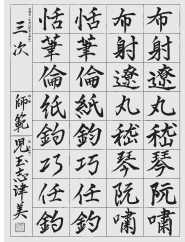 布射遼丸嵇琴阮嘯
布射遼丸嵇琴阮嘯
恬筆倫紙鈞巧任釣
恬筆倫紙鈞巧任釣
三次
師範 児玉志津美